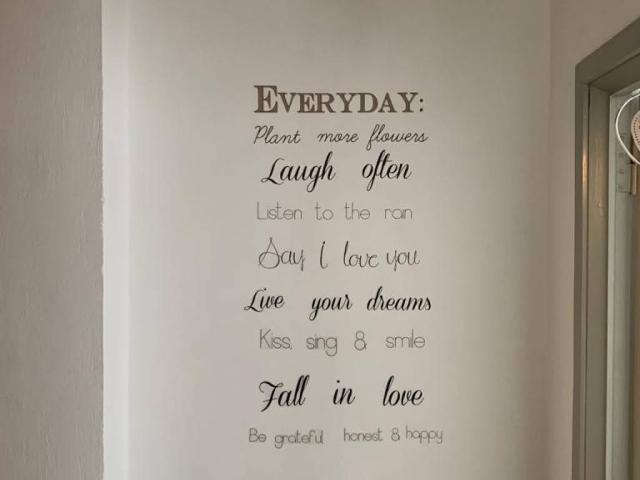 EVERYDAY:
Plant more flowers
Laugh often
Listen to the rain
Say I love you
Live your dreams
Kiss, sing & smile
Fall in love
Be grateful honest & happy